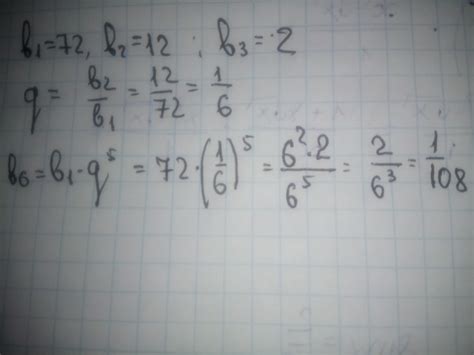 в₁=72, в₂=12 ; в₃=2
q = в₂/в₁ = 12/72 = 1/6
в₆=в₁·q⁵ = 72·(1/6)⁵ = 6²·2/6⁵ = 2/6³ = 1/108